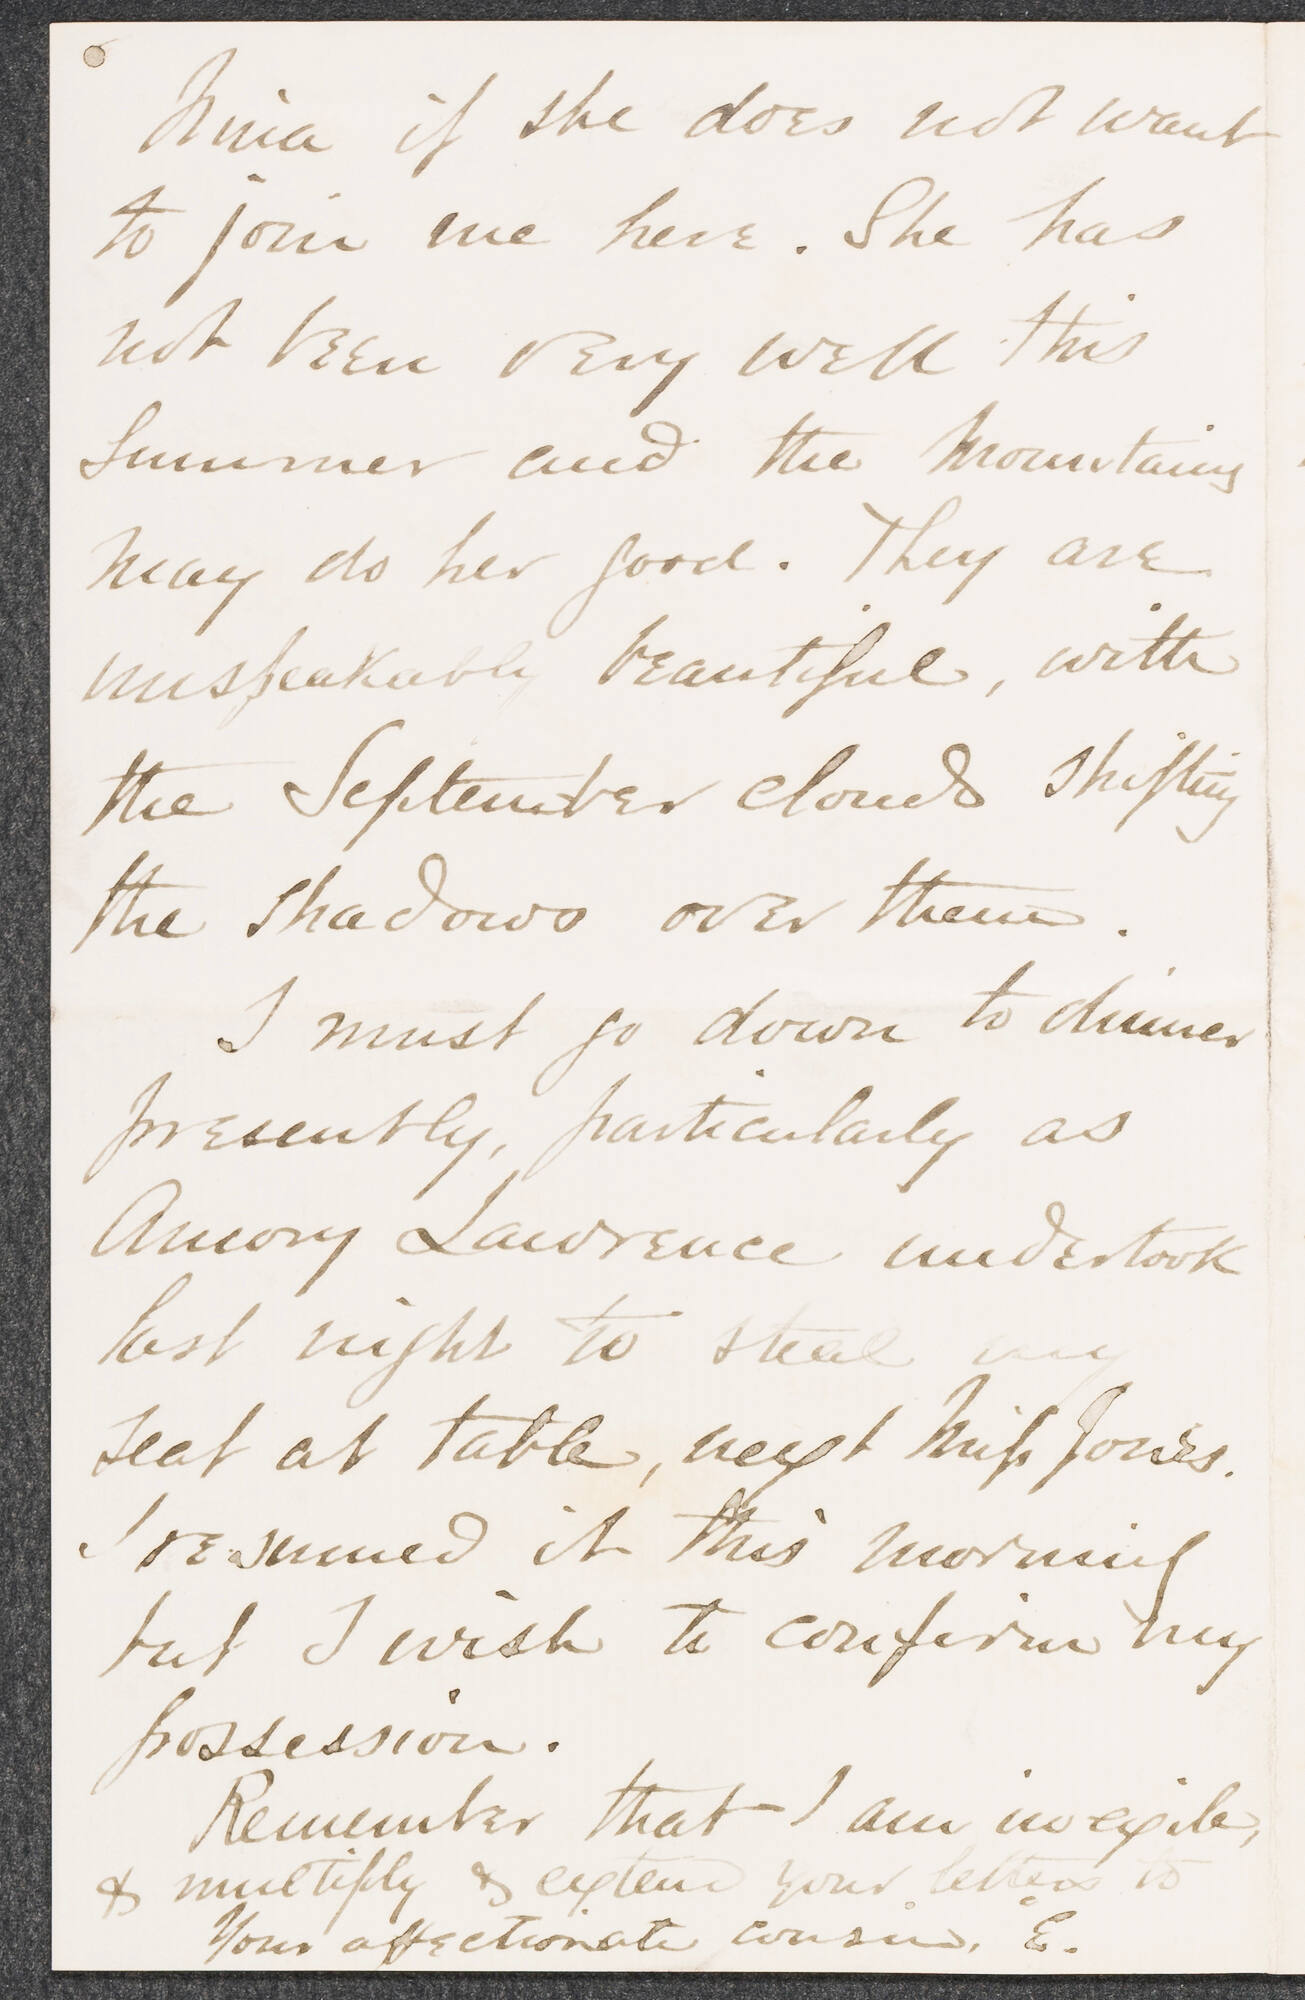 Nina if she does not want
to join me here. She has
not been very well this
Summer and the Mountains
may do her good. They are
unspeakably beautiful, with
the September clouds shifting
the shadows over them.
I must go down to dinner
presently, particularly as
Amory Lawrence undertook
last night to steal my
seat at table, next Miss Jones.
I resumed it this morning
but I wish to confirm my
possession.
Remember that I am in exile,
& multiply & extend your letters to
Your affectionate cousin, E.